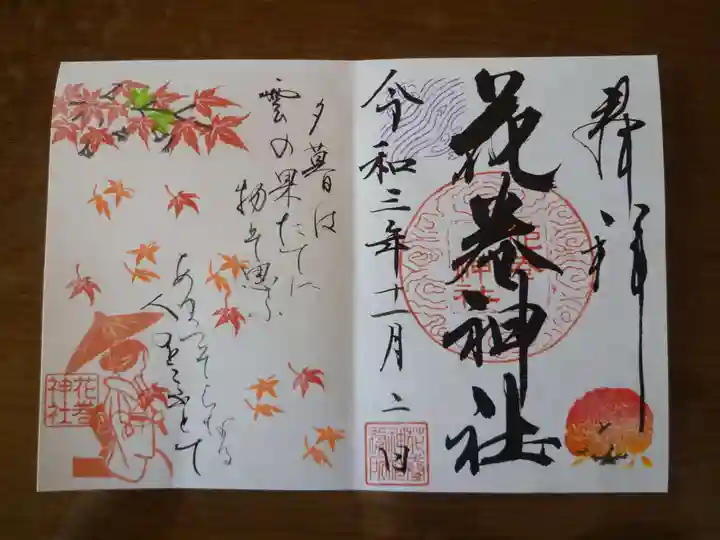 花巻神社
花巻神社
令和三年十一月二日
夕暮は
雲の果たてに
物そ思ふ
あまつそらなる
人をこふとて
花巻神社